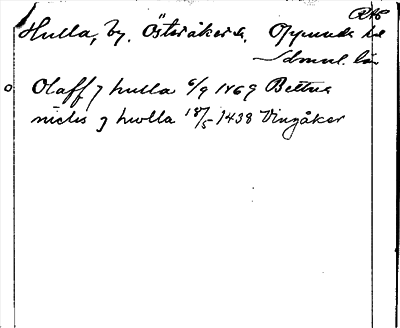 RAÄ
Hulla, by. Österåkers. Oppunda hd
Södmnl. län
Olaff j hulla 6/9 1469 Bettna
niclis j hwlla 18/5 1438 Vingåker